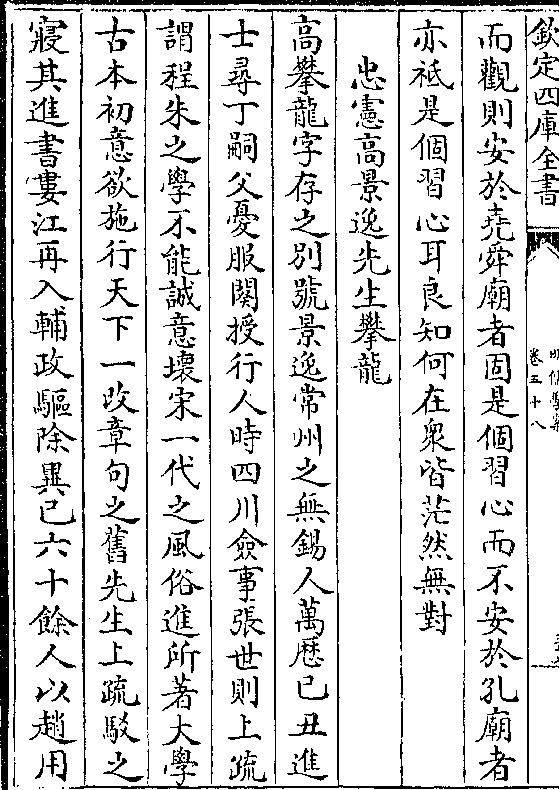 欽定四庫全書
明儒學案
卷五十八
而觀則安於堯舜廟者固是個習心而不安於孔廟者
亦祗是個習心耳良知何在衆皆茫然無對
忠憲高景逸先生攀龍
高攀龍字存之別號景逸常州之無錫人萬歴己丑進
士尋丁嗣父憂服闋授行人時四川僉事張世則上疏
謂程朱之學不能誠意壞宋一代之風俗進所著大學
古本初意欲施行天下一改章句之舊先生上疏駁之
寢其進書婁江再入輔政驅除異己六十餘人以趙用